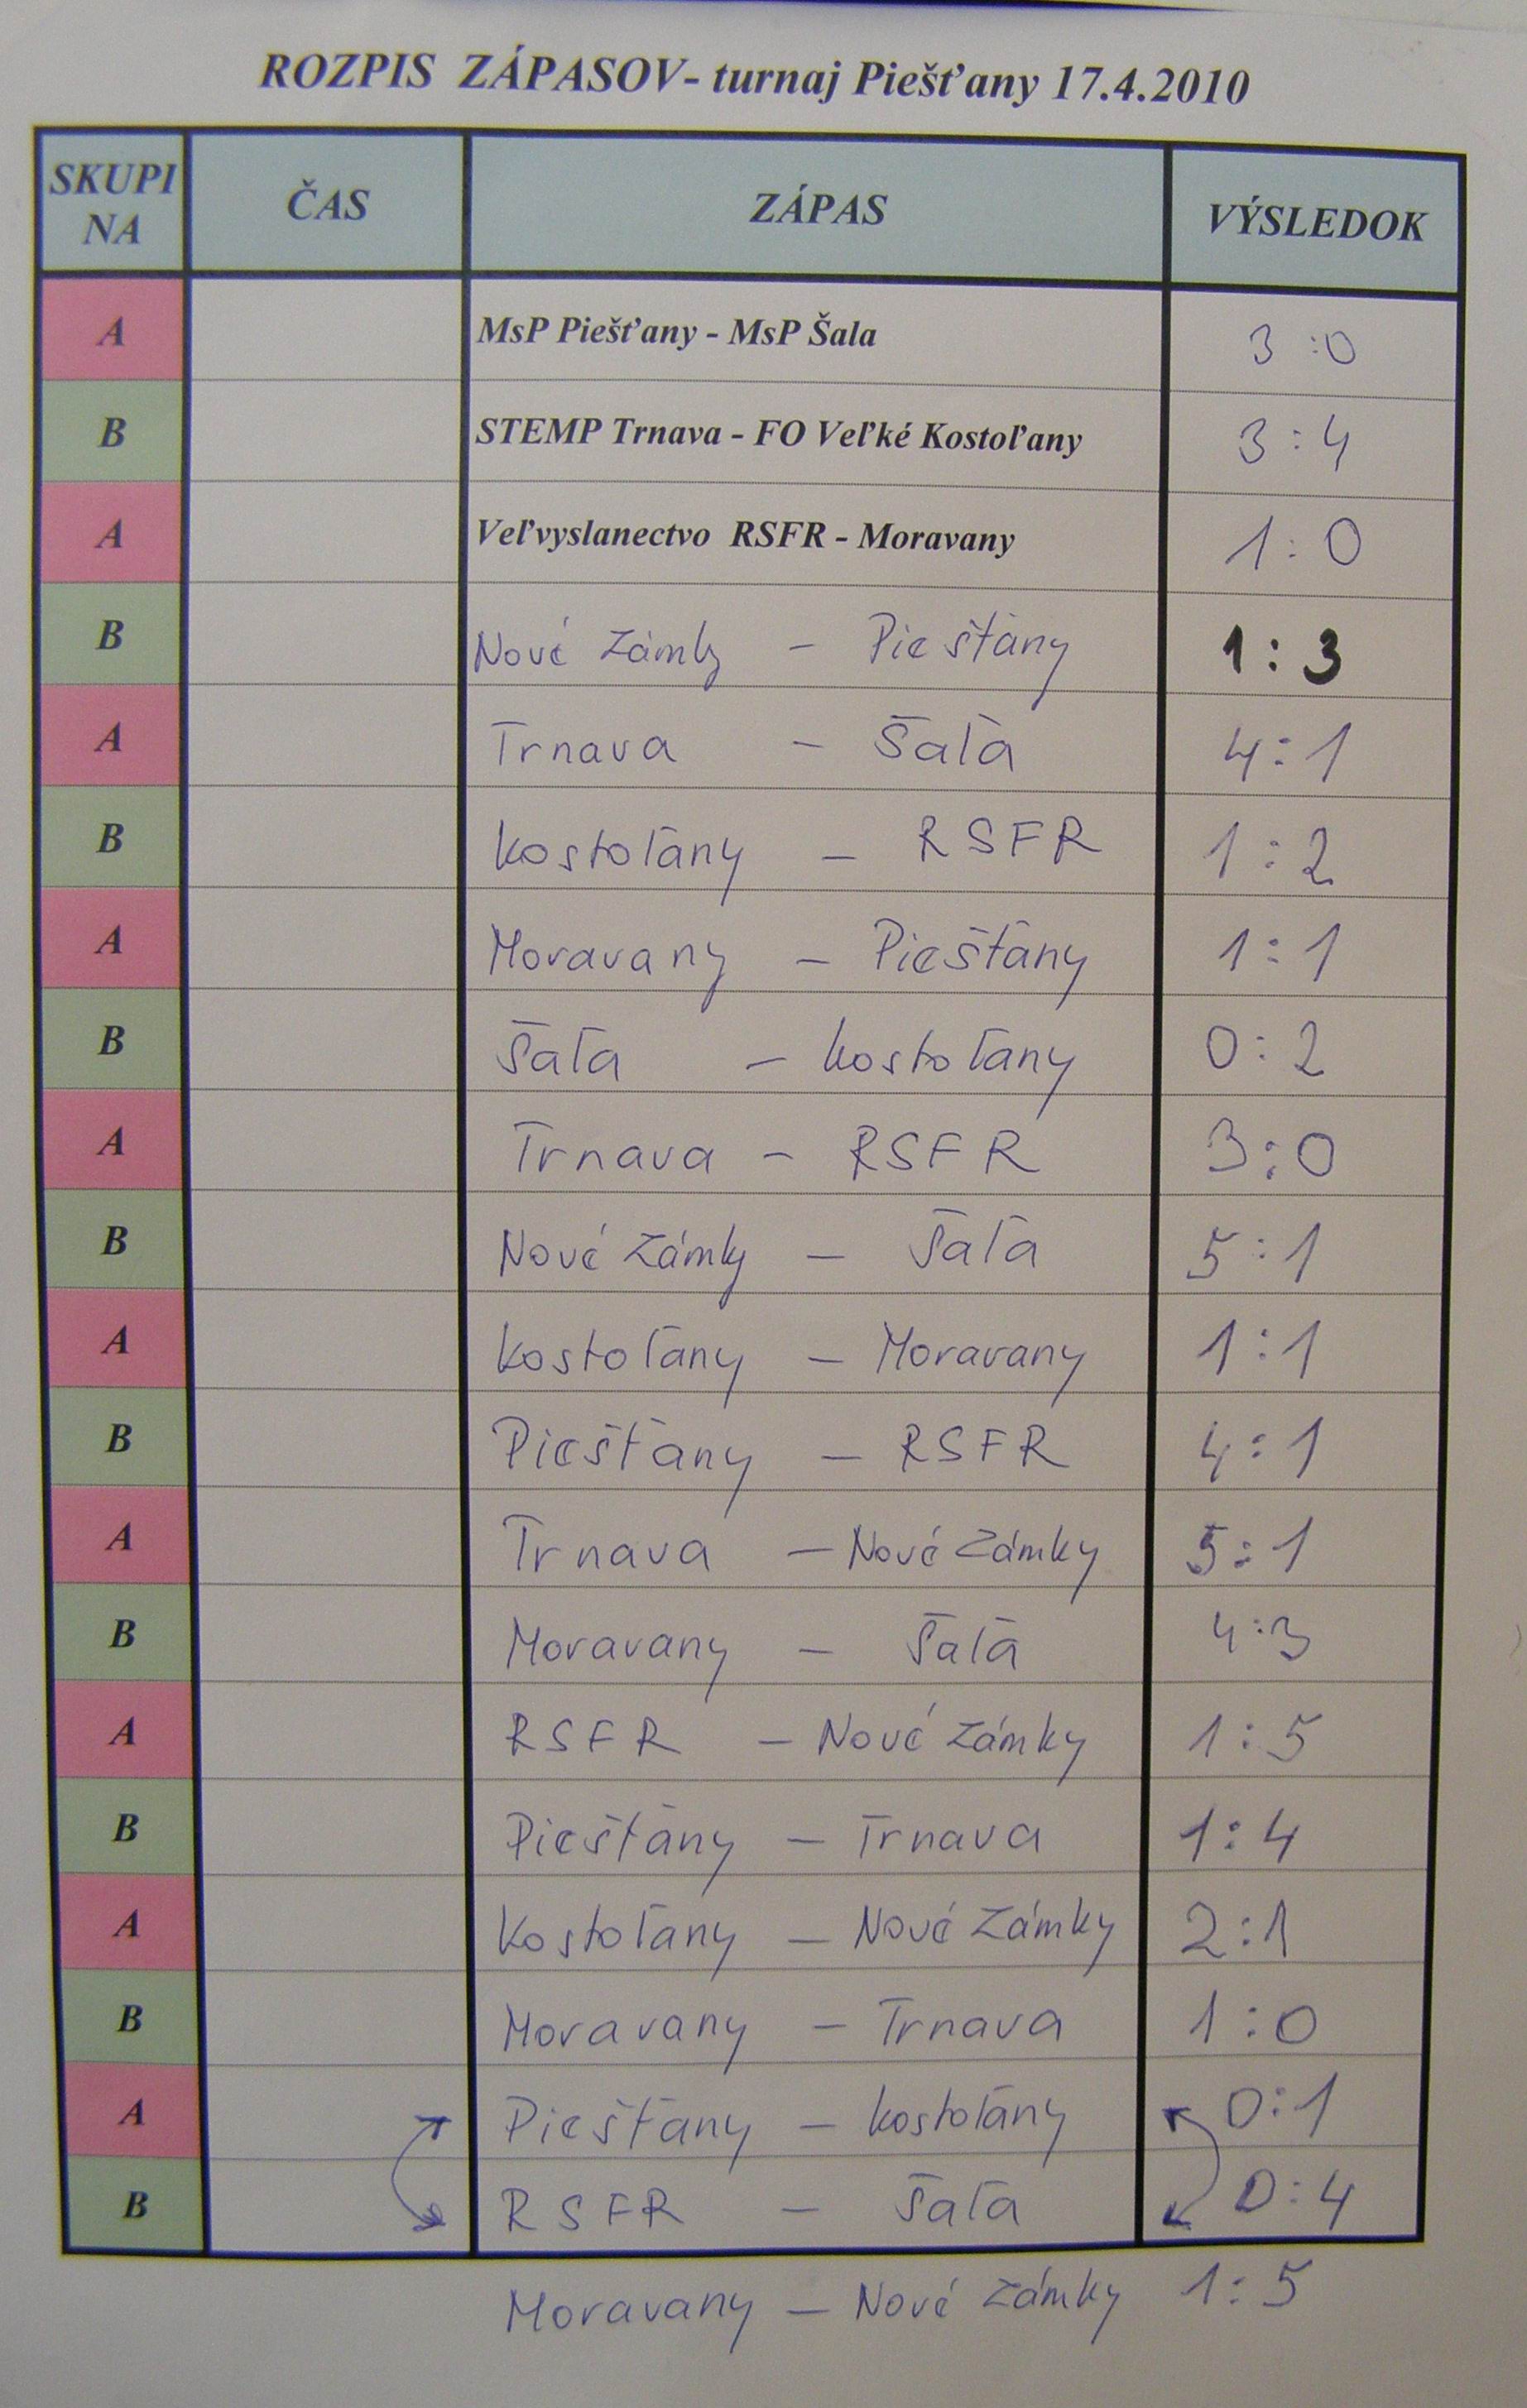 ROZPIS ZÁPASOV- turnaj Piešťany 17.4.2010
SKUPI
NA ČAS ZÁPAS VÝSLEDOK
A MsP Piešťany - MsP Šala 3:0
B STEMP Trnava - FO Veľké Kostoľany 3:4
A Veľvyslanectvo RSFR - Moravany 1:0
B Nové Zámky - Piešťany 1:3
A Trnava - Šaľa 4:1
B Kostoľany - RSFR 1:2
A Moravany - Piešťany 1:1
B Šaľa - Kostoľany 0:2
A Trnava - RSFR 3:0
B Nové Zámky - Šaľa 5:1
A Kostoľany - Moravany 1:1
B Piešťany - RSFR 4:1
A Trnava - Nové Zámky 5:1
B Moravany - Šaľa 4:3
A RSFR - Nové Zámky 1:5
B Piešťany - Trnava 1:4
A Kostoľany - Nové Zámky 2:1
B Moravany - Trnava 1:0
A Piešťany - Kostoľany 0:1
B RSFR - Šaľa 0:4
Moravany - Nové Zámky 1:5